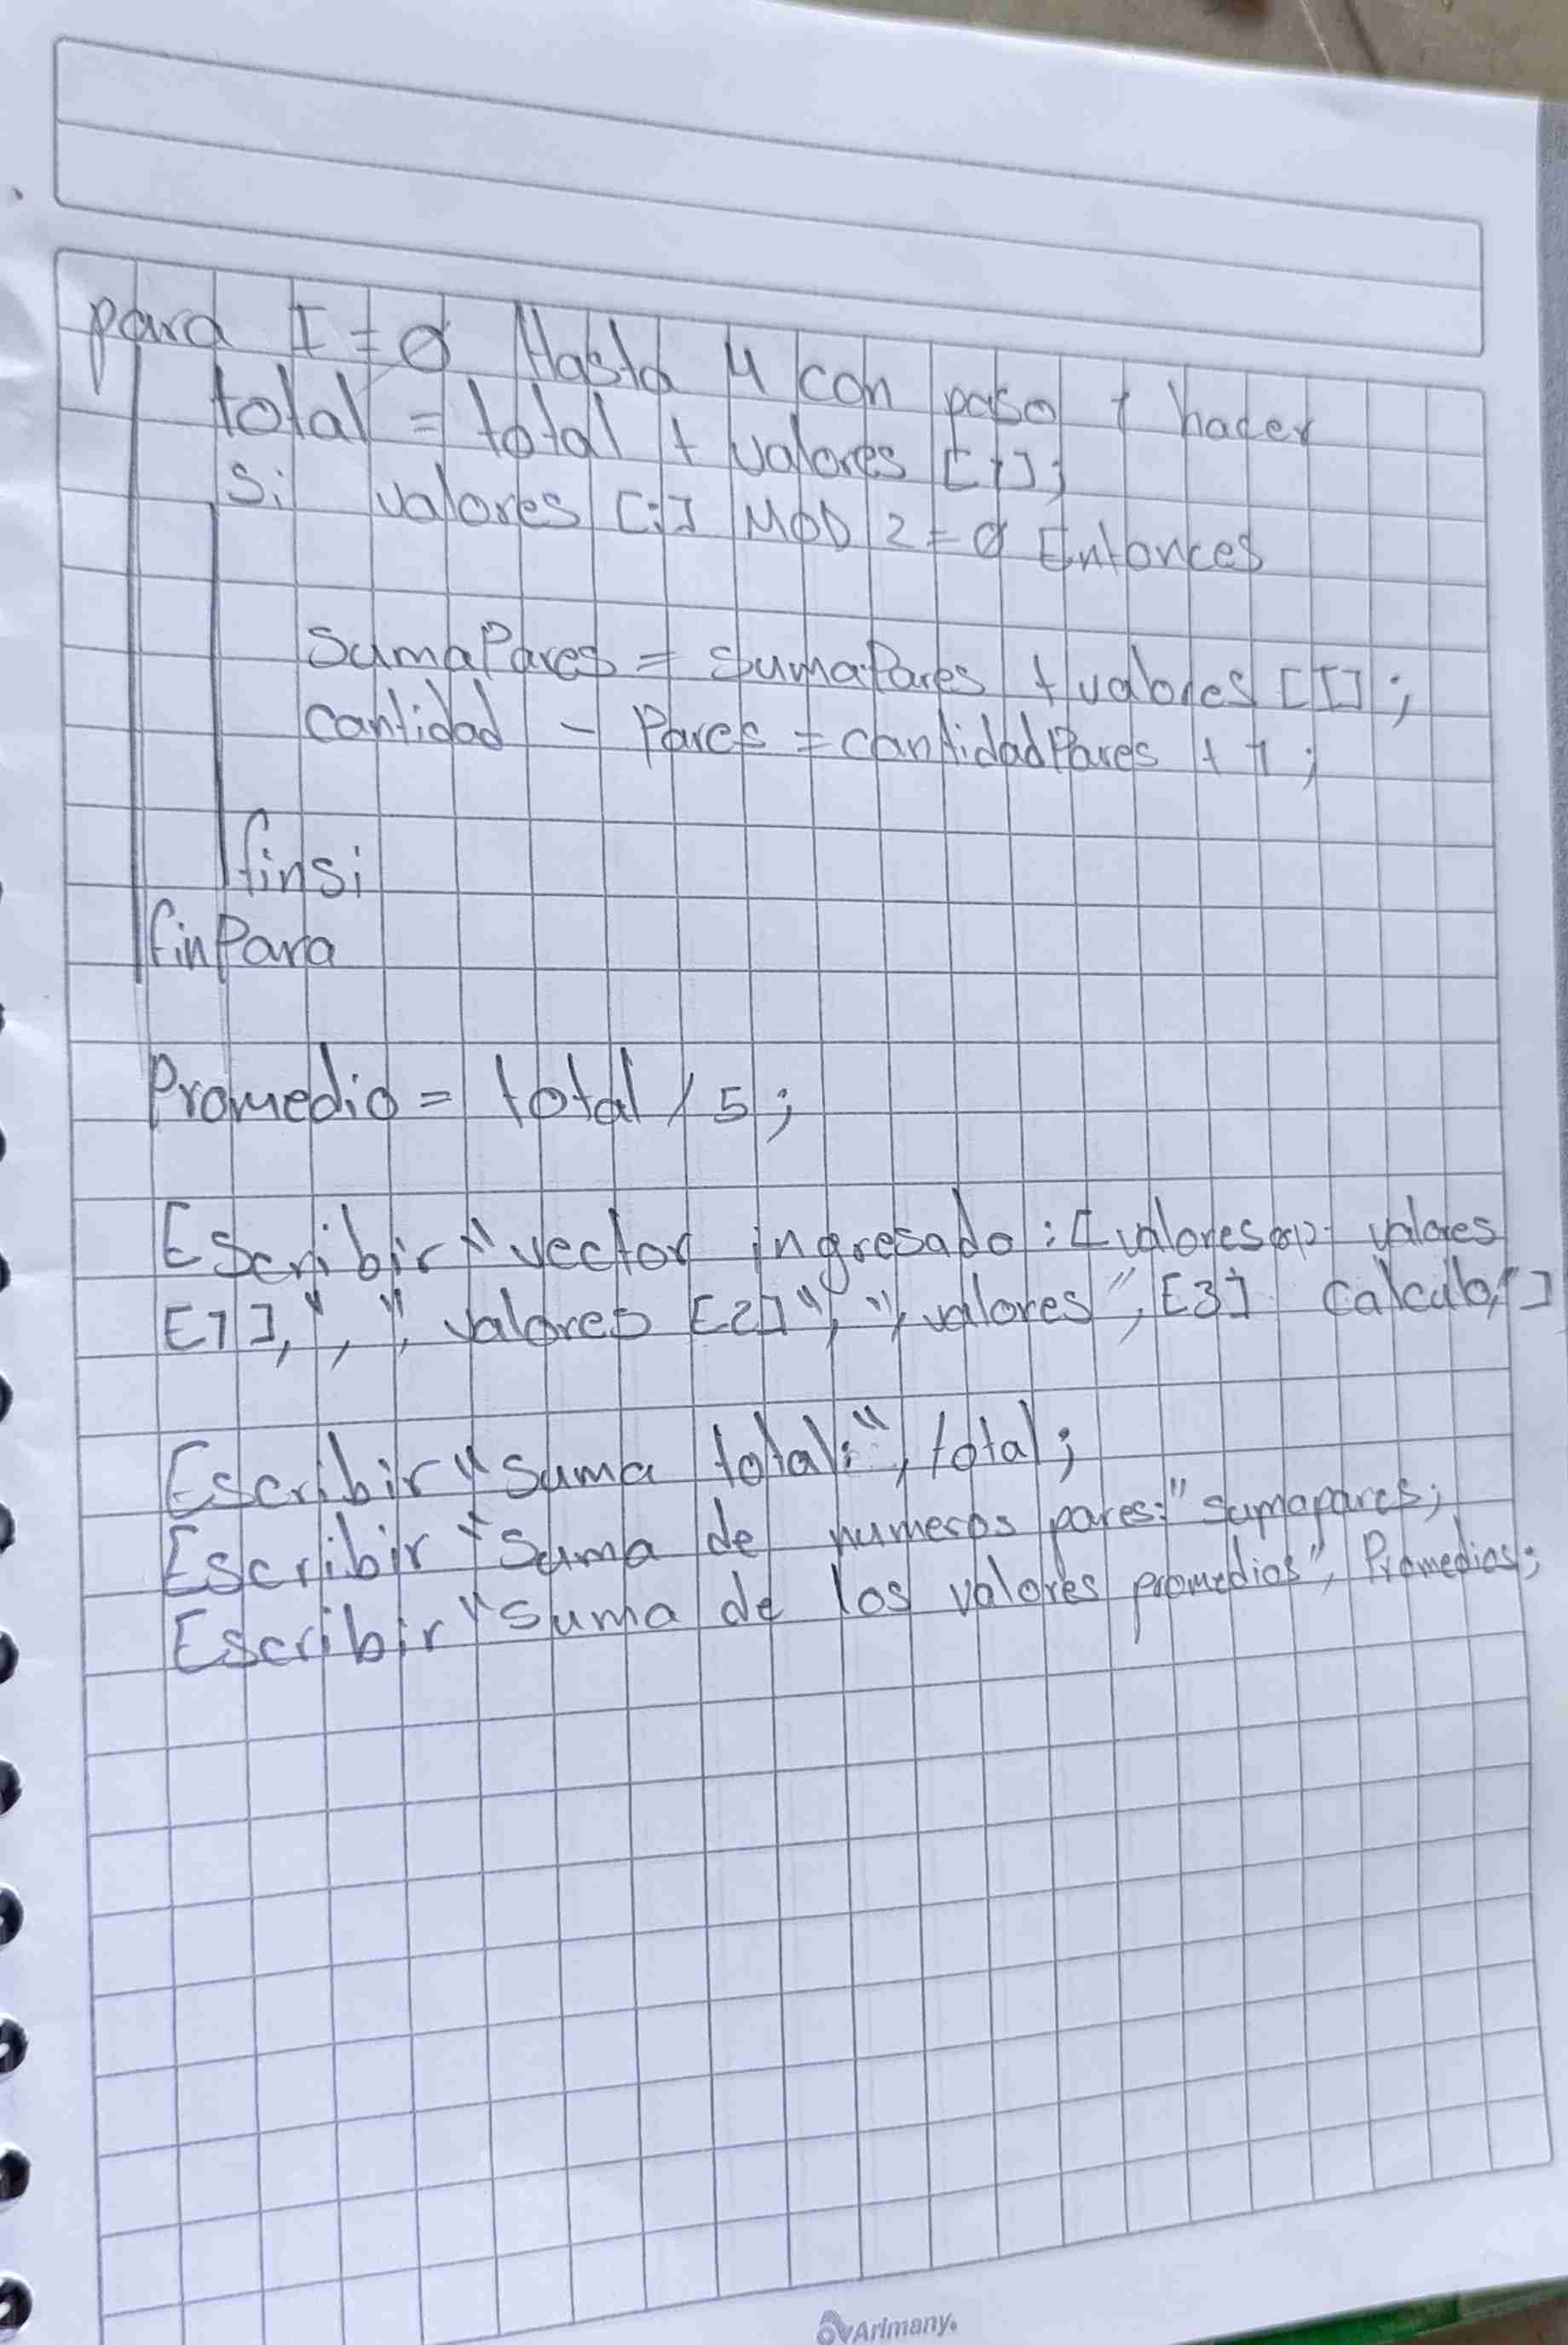 para I = 0 Hasta 4 con paso 1 hacer
total = total + valores [i];
Si valores [i] MOD 2 = 0 Entonces
SumaPares = sumaPares + valores [I];
cantidad - Pares = cantidadPares + 1;
finsi
finPara
Promedio = total / 5;
Escribir "vector ingresado: [valores valores
[1], ", ", valores [2]", ", valores", [3] calculo,"]
Escribir "Suma total:", total;
Escribir "Suma de numeros pares:" sumapares;
Escribir "Suma de los valores promedios", Promedios;
Arimany.